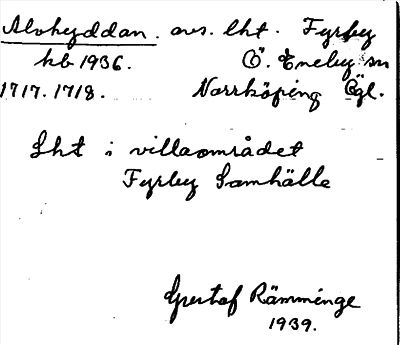 Alvhyddan. avs. lht. Fyrby
kb 1936. Ö. Eneby sn
1717. 1718. Norrköping Ögl.
Lht i villaområdet
Fyrby Samhälle
Gustaf Rämminge
1939.